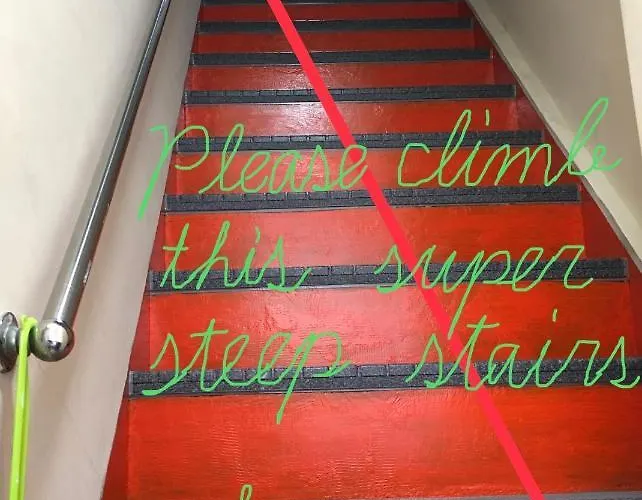 Please climb
this super
steep stairs